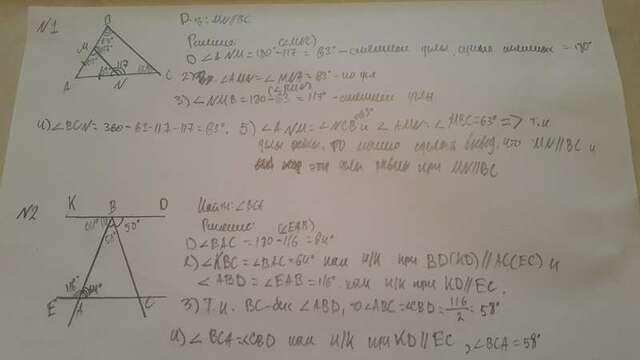 N1
B
M
A
N
C
117
Д-ть: MN||BC
Решение:
1) ∠ANM = 180-117 = 63° - смежные углы, сумма смежных = 180°
2) ∠AMN = ∠MNB = 63° - по усл
3) ∠NMB = 180-63 = 117° - смежные углы
4) ∠BCN = 360-63-117-117 = 63°. 5) ∠ANM = ∠NCB и ∠AMN = ∠MBC = 63° => т.к
углы равны, то можно сделать вывод, что MN||BC и
эти углы равны при MN||BC
N2
K B D
64° 50°
58°
116° 64°
E A C
Найти: ∠BCA
Решение: (∠EAB)
1) ∠BAC = 180-116 = 64°
2) ∠KBC = ∠BAC = 64° как н/к при BD(KD)||AC(EC) и
∠ABD = ∠EAB = 116° как н/к при KD||EC.
3) Т.к. BC-бис ∠ABD, то ∠ABC = ∠CBD = 116/2 = 58°
4) ∠BCA = ∠CBD как н/к при KD||EC, ∠BCA = 58°